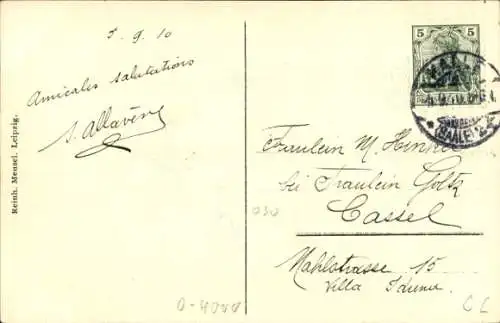 5. 9. 10
Amicales salutations
S. Allavén
Reinh. Meusel, Leipzig.
5
HALLE
(SAALE) 2
Fräulein M. Henkel
bei Fräulein Goltz
Cassel
Mahlstrasse 15
Villa Iduna